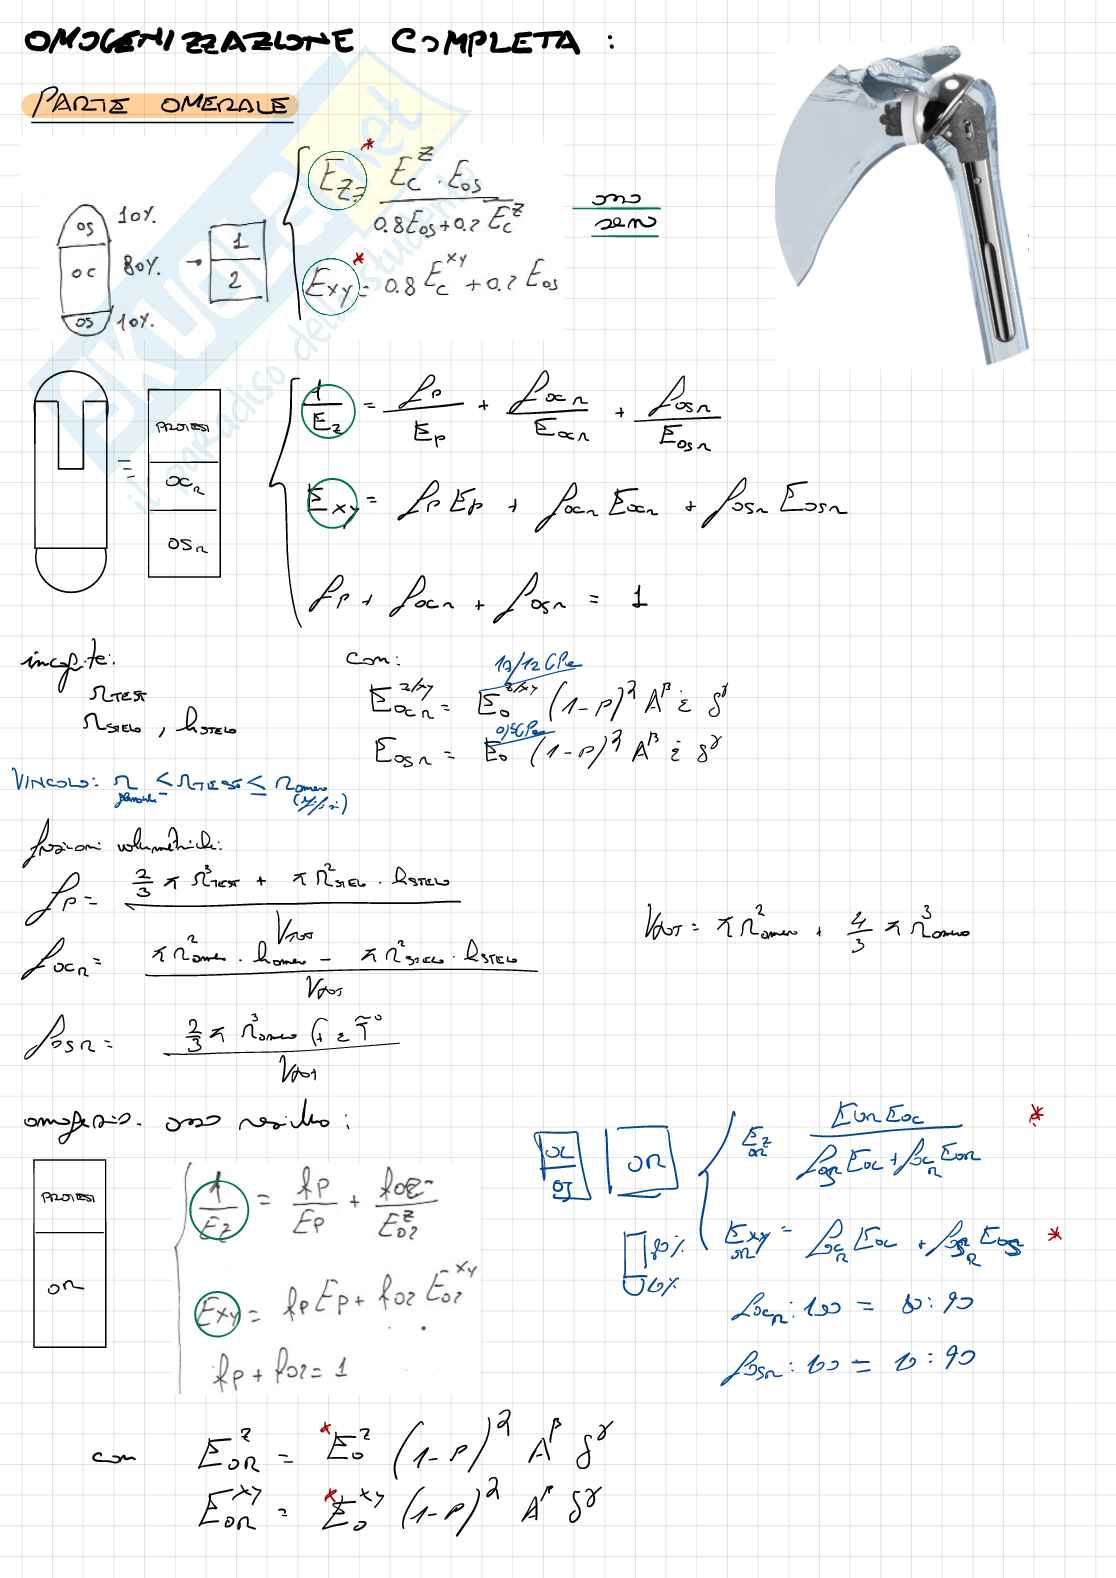 OMOGENIZZAZIONE COMPLETA :
PARTE OMERALE
OS 10%
OC 80% → 1 2
OS 10%
E_Z = E_C^Z · E_OS / (0.8 E_OS + 0.2 E_C^Z) *
E_XY = 0.8 E_C^XY + 0.2 E_OS *
OSSO SANO
= PROTESI OC_R OS_R
1/E_Z = f_P/E_P + f_OCR/E_OCR + f_OSR/E_OSR
E_XY = f_P E_P + f_OCR E_OCR + f_OSR E_OSR
f_P + f_OCR + f_OSR = 1
incognite:
R_TEST
R_STELO , h_STELO
con:
E_OCR^Z/XY = E_0^Z/XY (1-P)^2 A^β i δ^γ
E_OSR = E_0 (1-P)^2 A^β i δ^γ
VINCOLO: R ≤ R_TEST ≤ R_omero
frazioni volumetriche:
f_P = (2/3 π R_TEST^3 + π R_STELO^2 · h_STELO) / V_TOT
V_TOT = π R_omero^2 + 4/3 π R_omero^3
f_OCR = (π R_omero^2 · h_omero - π R_STELO^2 · h_STELO) / V_TOT
f_OSR = 2/3 π R_omero^3 / V_TOT
omogeneizz. osso residuo :
PROTESI
OR
1/E_Z = f_P/E_P + f_OR/E_OR^Z
E_XY = f_P E_P + f_OR E_OR^XY
f_P + f_OR = 1
OC OS OR
E_OR^Z E_OR E_OC / (f_OSR E_OC + f_OCR E_OR) *
E_OR^XY = f_OCR E_OC + f_OSR E_OS *
80%
10%
f_OCR : 100 = 80 : 90
f_OSR : 100 = 10 : 90
con E_OR^Z = *E_0^Z (1-P)^2 A^β δ^γ
E_OR^XY = *E_0^XY (1-P)^2 A^β δ^γ